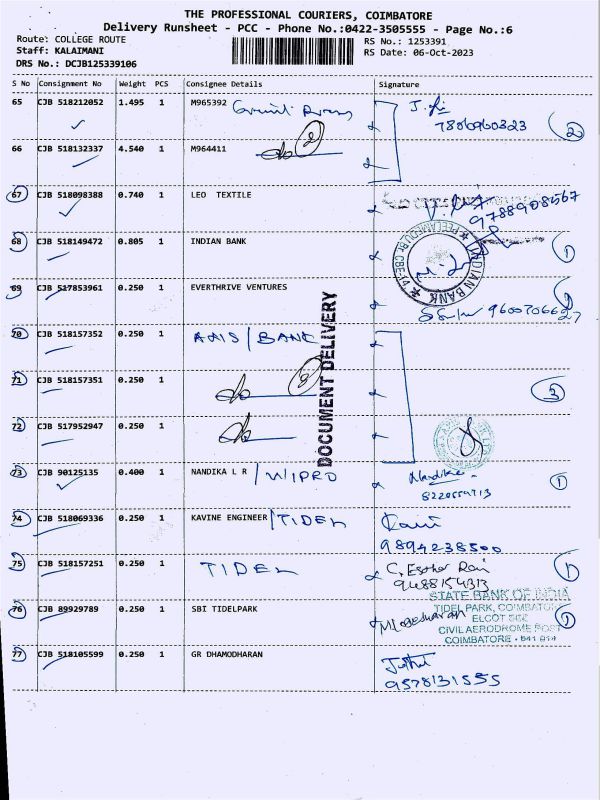 THE PROFESSIONAL COURIERS, COIMBATORE
Delivery Runsheet - PCC - Phone No.:0422-3505555 - Page No.:6
Route: COLLEGE ROUTE
Staff: KALAIMANI
DRS No.: DCJB125339106
RS No.: 1253391
RS Date: 06-Oct-2023
S No Consignment No Weight PCS Consignee Details Signature
65 CJB 518212052 1.495 1 M965392
7806960323 2
66 CJB 518132337 4.540 1 M964411 2
67 CJB 518098388 0.740 1 LEO TEXTILE
9788908567
68 CJB 518149472 0.805 1 INDIAN BANK 1
PEELAMEDU BR. CBE-14 INDIAN BANK
69 CJB 517853961 0.250 1 EVERTHRIVE VENTURES
DOCUMENT DELIVERY
70 CJB 518157352 0.250 1 AXIS/BANK
71 CJB 518157351 0.250 1 3 3
72 CJB 517952947 0.250 1
73 CJB 90125135 0.400 1 NANDIKA L R /WIPRO Nandika 1
74 CJB 518069336 0.250 1 KAVINE ENGINEER/TIDEL
9894238500
75 CJB 518157251 0.250 1 TIDEL C. Esther Rani 1
9488154313
76 CJB 89929789 0.250 1 SBI TIDELPARK 1
STATE BANK OF INDIA
TIDEL PARK, COIMBATORE
ELCOT SEZ
CIVIL AERODROME POST
COIMBATORE - 641 014
77 CJB 518105599 0.250 1 GR DHAMODHARAN
9578131555